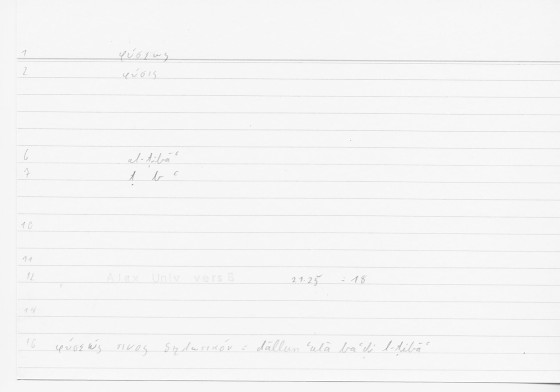 1 φύσεως
2 φύσις
6 al-ṭibāʿ
7 ṭ b ʿ
10
11
12 Alex Univ vers 5 21.25 - 18
14
16 φύσεώς τινος δηλωτικόν : dāllun ʿalā baʿḍi l-ṭibāʿ